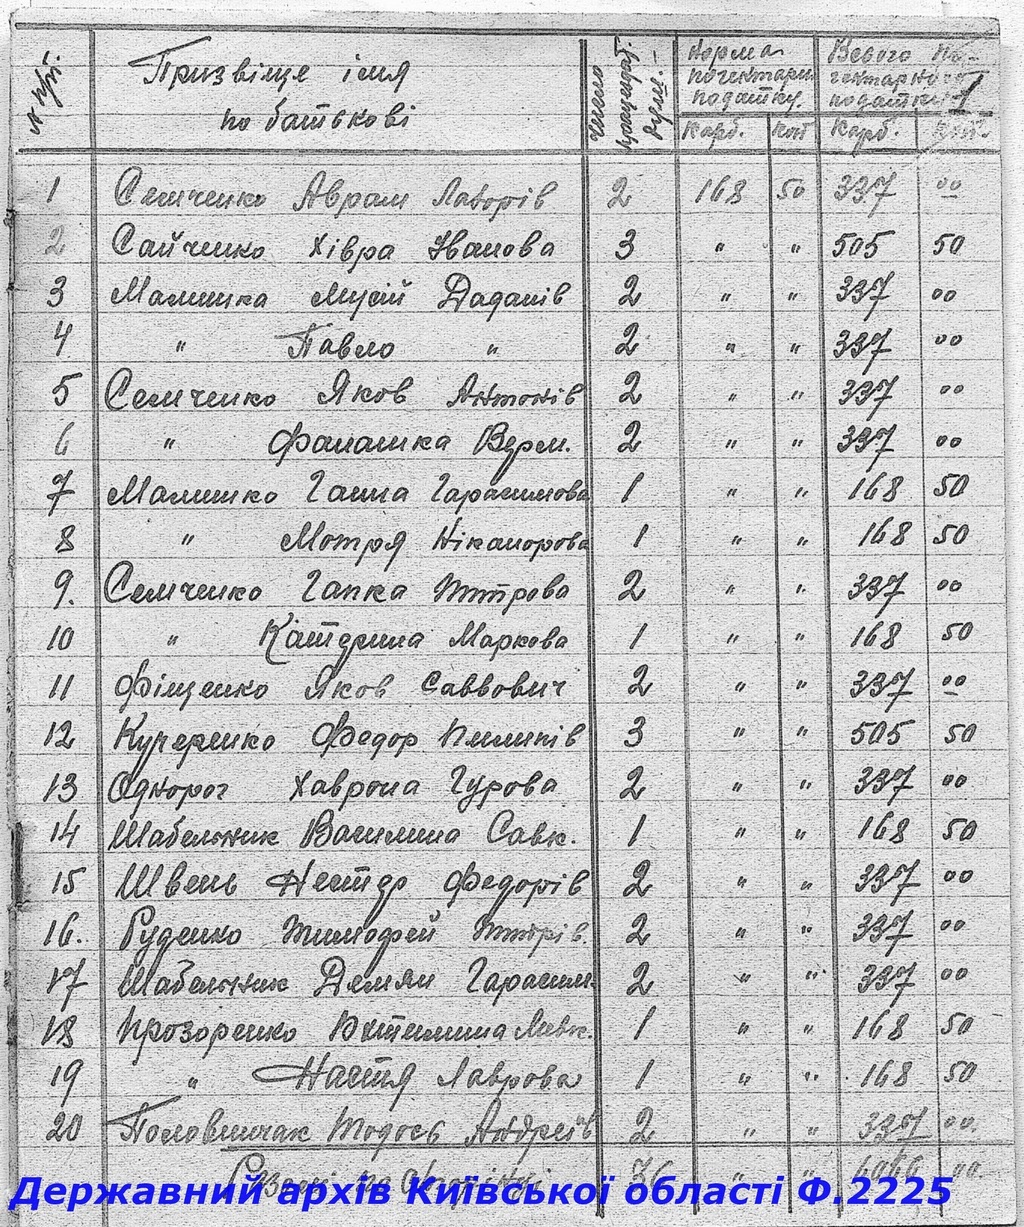 № п/п. Призвіще імя по батькові Число працездат. Норма погектарн. податку. Всього по- гектарного податку
Карб. коп Карб. коп.
1 Семченко Аврам Лаворів 2 168 50 337 00
2 Сайченко Хівра Іванова 3 " " 505 50
3 Малишка Мусій Даданів 2 " " 337 00
4 " Павло " 2 " " 337 00
5 Семченко Яков Антонів 2 " " 337 00
6 " Фанашка 2 " " 337 00
7 Малишко Ганна Гарасимова 1 " " 168 50
8 " Мотря Ніканорова 1 " " 168 50
9. Семченко Гапка 2 " " 337 00
10 " Катерина Маркова 1 " " 168 50
11 Фіщенко Яков Саввович 2 " " 337 00
12 Кучеренко Федор Пилипів 3 " " 505 50
13 Однорог Хаврона Гурова 2 " " 337 00
14 Шабельник Василина Савк. 1 " " 168 50
15 Швець Нестер Федорів 2 " " 337 00
16. Руденко Тимофей 2 " " 337 00
17 Шабельник Демян Гарасим. 2 " " 337 00
18 Прозоренко 1 " " 168 50
19 " Настя Лаврова 1 " " 168 50
20 Половинчак Тодось Андреїв 2 " " 337 00.
36 " " 00.
Державний архів Київської області Ф.2225